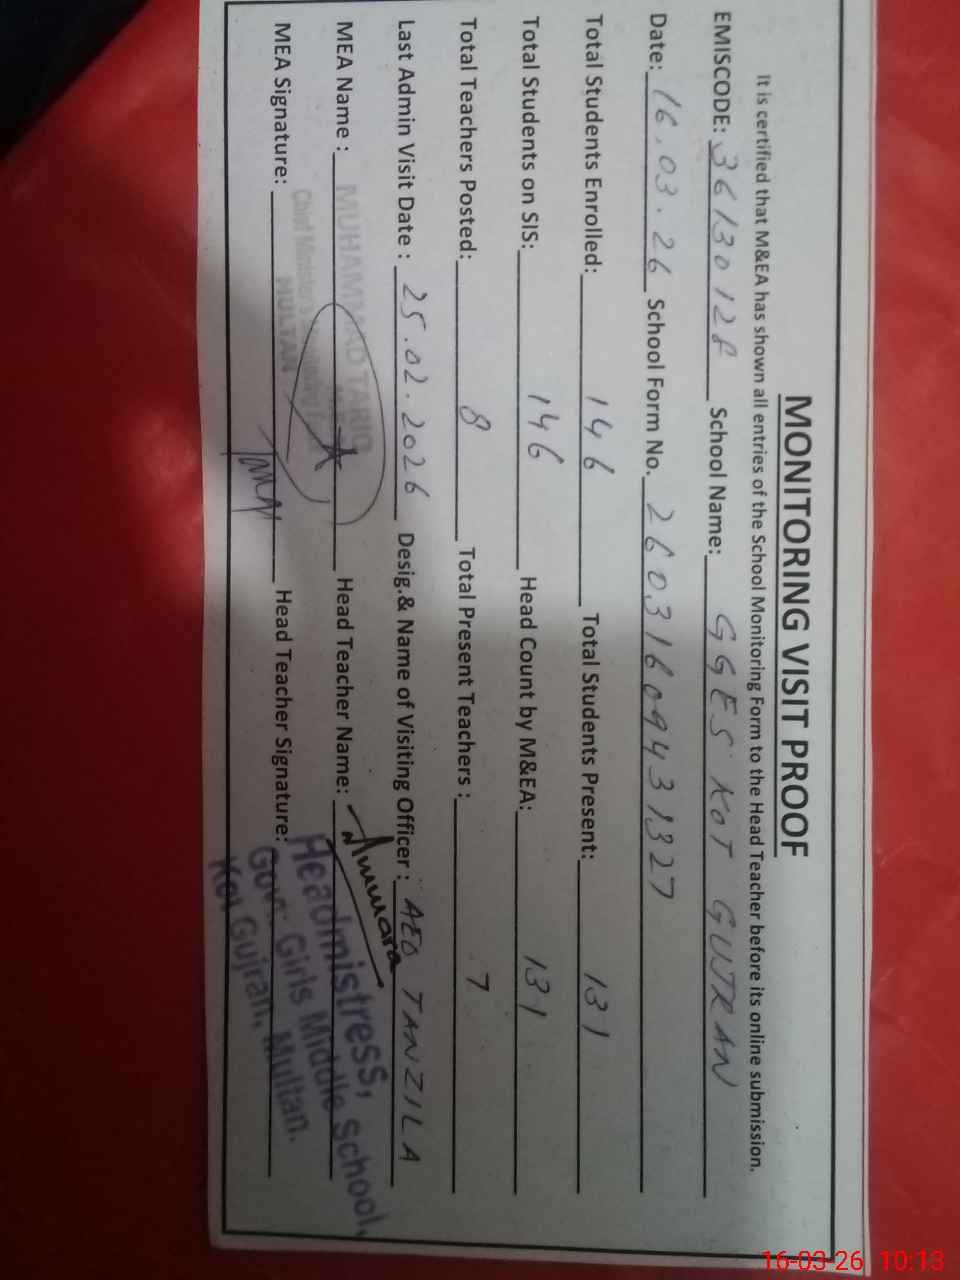 MONITORING VISIT PROOF
It is certified that M&EA has shown all entries of the School Monitoring Form to the Head Teacher before its online submission.
EMISCODE: 36130128 School Name: GGES KOT GUJRAN
Date: 16.03.26 School Form No. 26031609431327
Total Students Enrolled: 146 Total Students Present: 131
Total Students on SIS: 146 Head Count by M&EA: 131
Total Teachers Posted: 8 Total Present Teachers : 7
Last Admin Visit Date : 25.02.2026 Desig.& Name of Visiting Officer : AEO TANZILA
MEA Name : MUHAMMAD TARIQ Head Teacher Name: Ammara
MULTAN
MEA Signature: Head Teacher Signature:
Headmistress,
Govt: Girls Middle School,
Kot Gujran, Multan.
16-03-26 10:13